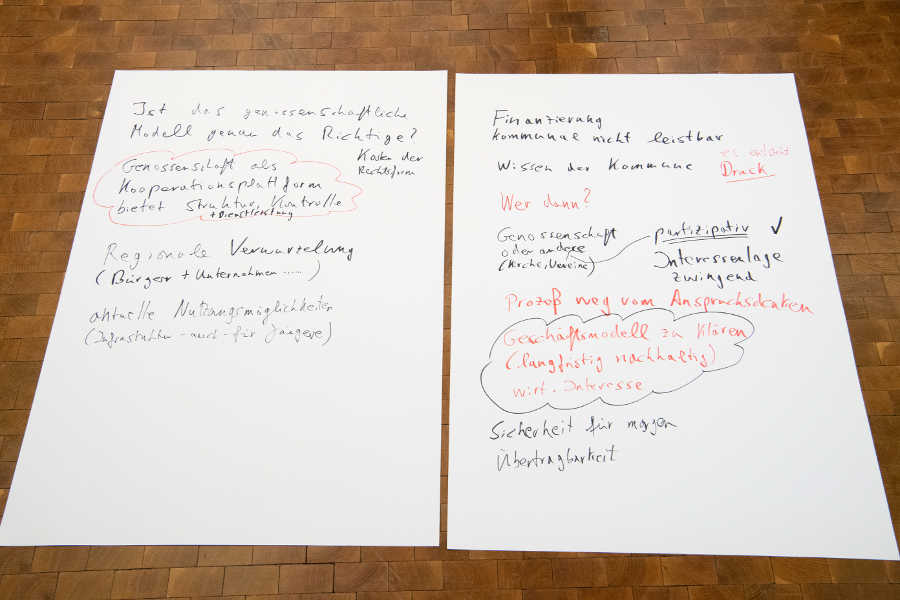 Ist das genossenschaftliche
Modell genau das Richtige?
Kosten der
Rechtsform
Genossenschaft als
Kooperationsplattform
bietet Struktur, Kontrolle
+ Dienstleistung
Regionale Verwurzelung
(Bürger + Unternehmen ......)
aktuelle Nutzungsmöglichkeiten
(Infrastruktur - auch - für Jüngere)
Finanzierung
kommunal nicht leistbar
Wissen der Kommune
es entsteht
Druck
Wer dann?
Genossenschaft
oder andere
(Kirche, Vereine)
partizipativ ✓
Interessenlage
zwingend
Prozeß weg vom Anspruchsdenken
Geschäftsmodell zu klären
(langfristig nachhaltig)
wirt. Interesse
Sicherheit für morgen
Übertragbarkeit